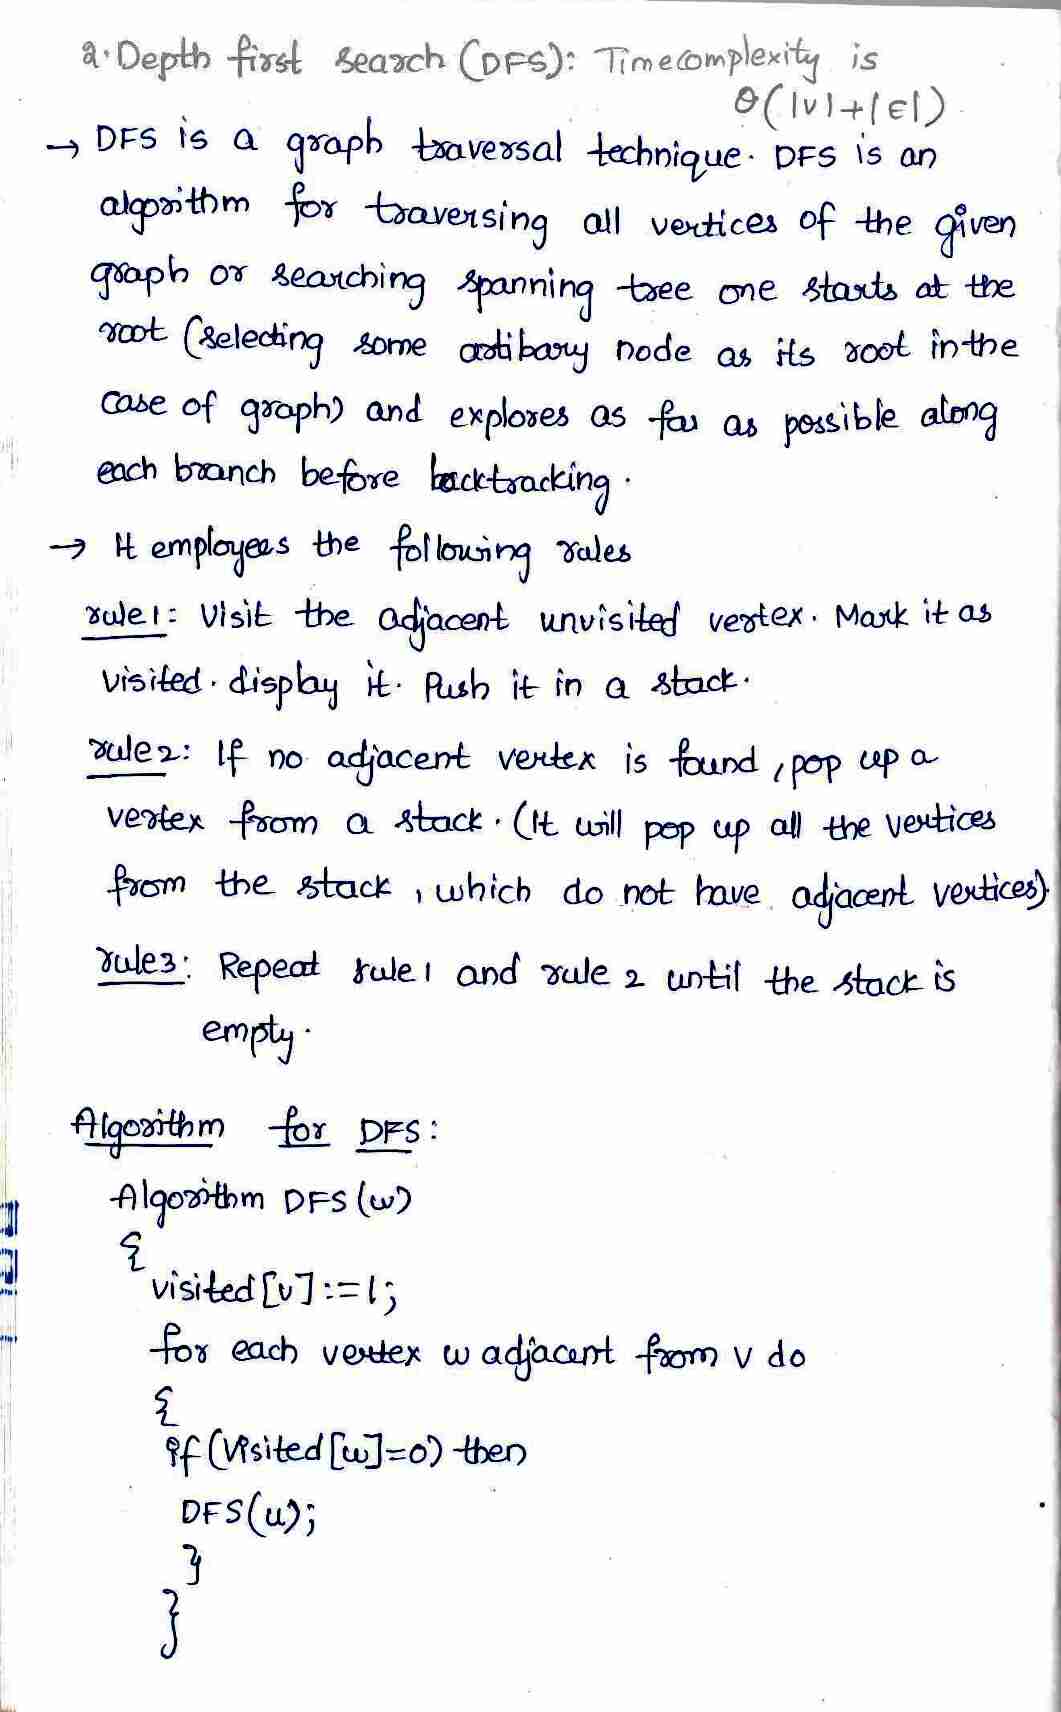 2. Depth first search (DFS): Time complexity is
θ(|V|+|E|)
→ DFS is a graph traversal technique. DFS is an
algorithm for traversing all vertices of the given
graph or searching spanning tree one starts at the
root (selecting some artibary node as its root in the
case of graph) and explores as far as possible along
each branch before backtracking.
→ It employees the following rules
rule1: Visit the adjacent unvisited vertex. Mark it as
visited. display it. Push it in a stack.
rule2: If no adjacent vertex is found, pop up a
vertex from a stack. (It will pop up all the vertices
from the stack, which do not have adjacent vertices)
rule3: Repeat rule1 and rule 2 until the stack is
empty.
Algorithm for DFS:
Algorithm DFS(w)
{
visited[v]:=1;
for each vertex w adjacent from v do
{
if(Visited[w]=0) then
DFS(u);
}
}